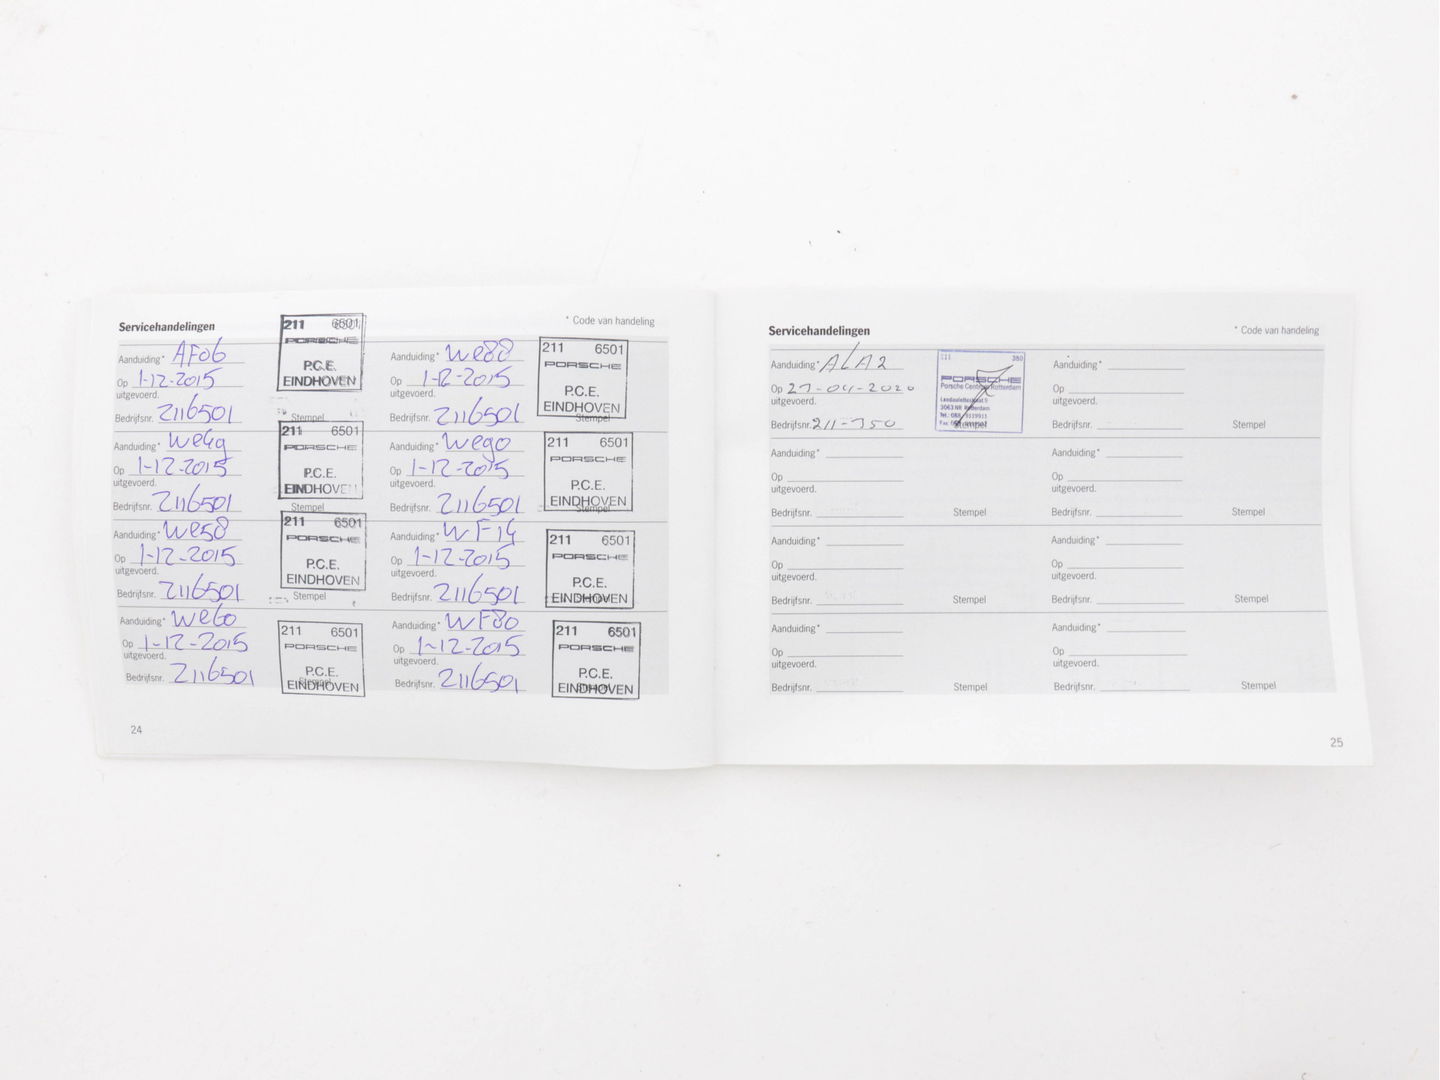 Servicehandelingen
* Code van handeling
Aanduiding* AF06
Op 1-12-2015
uitgevoerd.
Bedrijfsnr. 2116501
Stempel
211 6501
PORSCHE
P.C.E.
EINDHOVEN
Aanduiding* We88
Op 1-12-2015
uitgevoerd.
Bedrijfsnr. 2116501
Stempel
211 6501
PORSCHE
P.C.E.
EINDHOVEN
Aanduiding* We4g
Op 1-12-2015
uitgevoerd.
Bedrijfsnr. 2116501
Stempel
211 6501
PORSCHE
P.C.E.
EINDHOVEN
Aanduiding* We90
Op 1-12-2015
uitgevoerd.
Bedrijfsnr. 2116501
Stempel
211 6501
PORSCHE
P.C.E.
EINDHOVEN
Aanduiding* We58
Op 1-12-2015
uitgevoerd.
Bedrijfsnr. 2116501
Stempel
211 6501
PORSCHE
P.C.E.
EINDHOVEN
Aanduiding* WF14
Op 1-12-2015
uitgevoerd.
Bedrijfsnr. 2116501
211 6501
PORSCHE
P.C.E.
EINDHOVEN
Aanduiding* We60
Op 1-12-2015
uitgevoerd.
Bedrijfsnr. 2116501
Stempel
211 6501
PORSCHE
P.C.E.
EINDHOVEN
Aanduiding* WF80
Op 1-12-2015
uitgevoerd.
Bedrijfsnr. 2116501
211 6501
PORSCHE
P.C.E.
EINDHOVEN
24
Servicehandelingen
* Code van handeling
Aanduiding* ALA2
Op 27-04-2020
uitgevoerd.
Bedrijfsnr. 211-350
Stempel
211 380
PORSCHE
Porsche Centrum Rotterdam
3063 NR Rotterdam
Aanduiding*
Op
uitgevoerd.
Bedrijfsnr.
Stempel
Aanduiding*
Op
uitgevoerd.
Bedrijfsnr.
Stempel
Aanduiding*
Op
uitgevoerd.
Bedrijfsnr.
Stempel
Aanduiding*
Op
uitgevoerd.
Bedrijfsnr.
Stempel
Aanduiding*
Op
uitgevoerd.
Bedrijfsnr.
Stempel
Aanduiding*
Op
uitgevoerd.
Bedrijfsnr.
Stempel
Aanduiding*
Op
uitgevoerd.
Bedrijfsnr.
Stempel
25